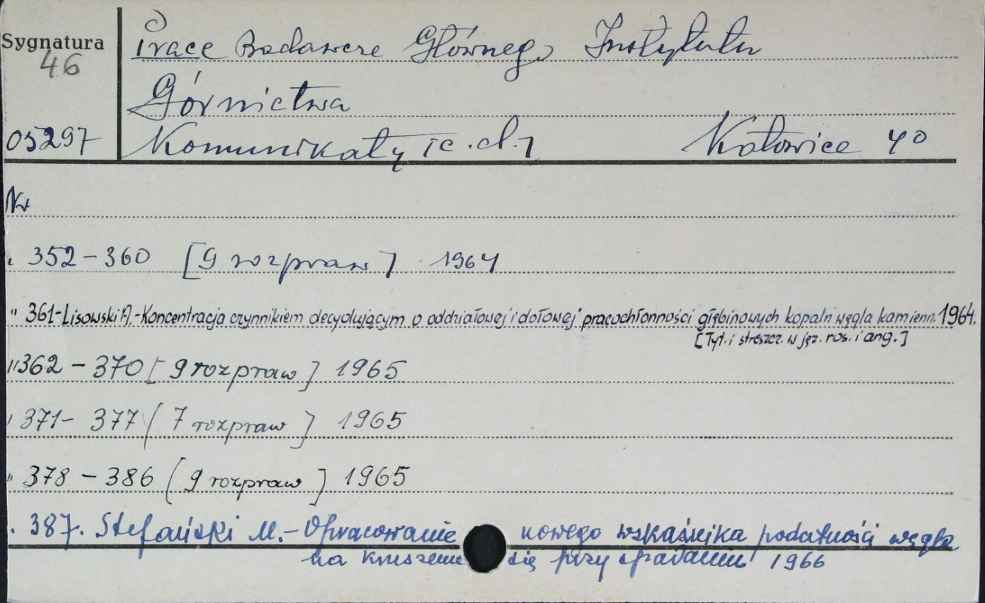 Sygnatura
46
Prace Badawcze Głównego Instytutu
Górnictwa
05297
Komunikaty [c.d.] Katowice 40
Nr
" 352-360 [9 rozpraw] 1964
" 361-Lisowski A.-Koncentracja czynnikiem decydującym o oddziałowej i dołowej pracochłonności głębinowych kopalń węgla kamienn. 1964.
[Tyt. i streszcz. w jęz. ros. i ang.]
" 362-370 [9 rozpraw] 1965
" 371-377 [7 rozpraw] 1965
" 378-386 [9 rozpraw] 1965
" 387. Stefański M.-Opracowanie nowego wskaźnika podatności węgla
na kruszenie się przy spadaniu 1966